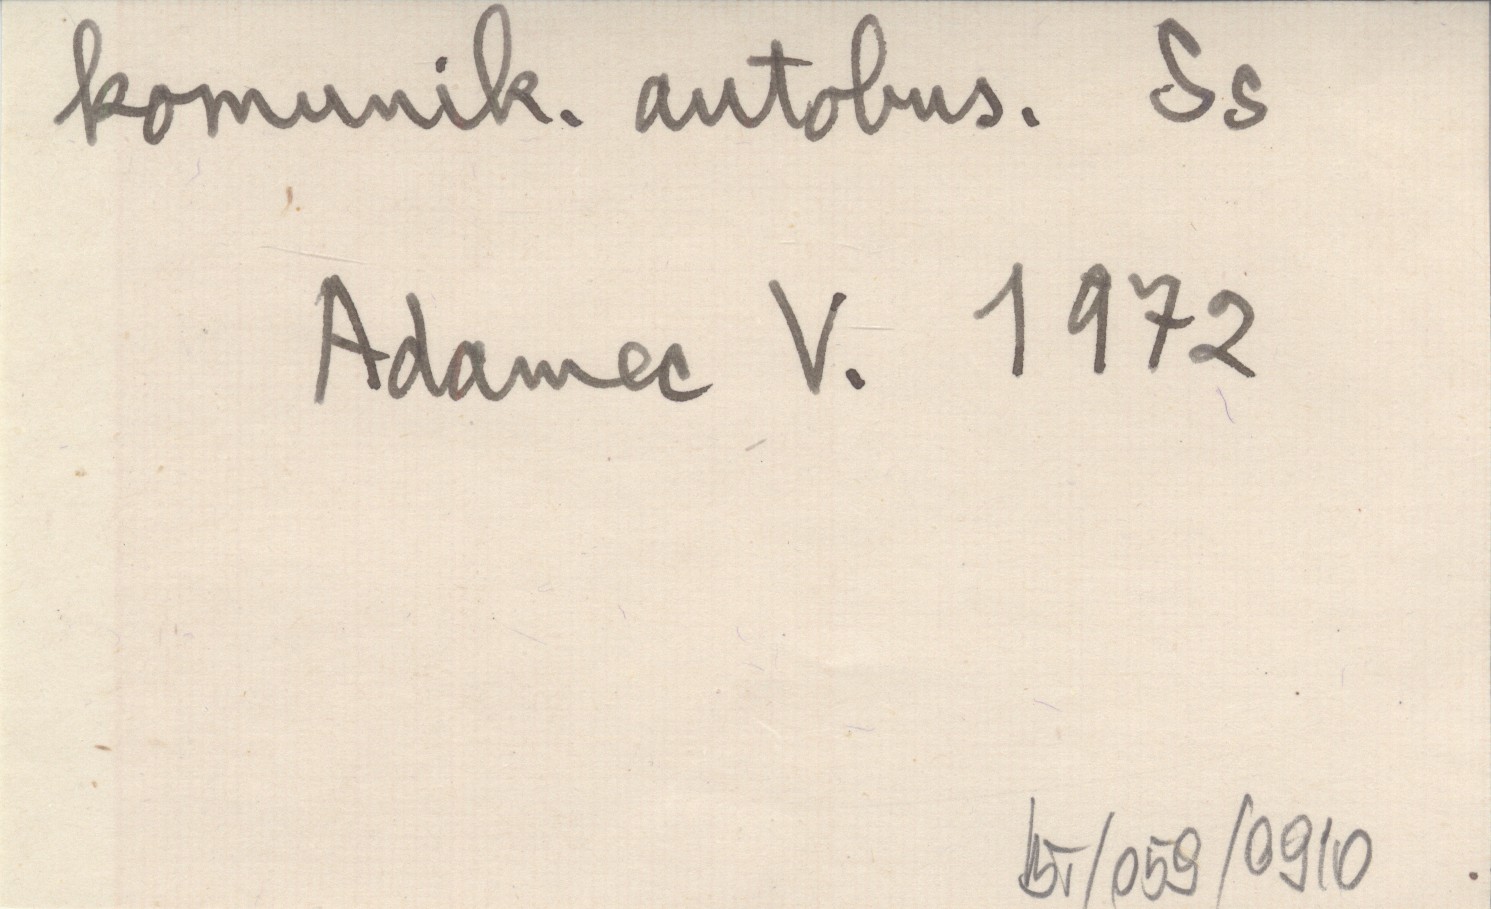 komunik. autobus. Ss
Adamec V. 1972
/059/0910